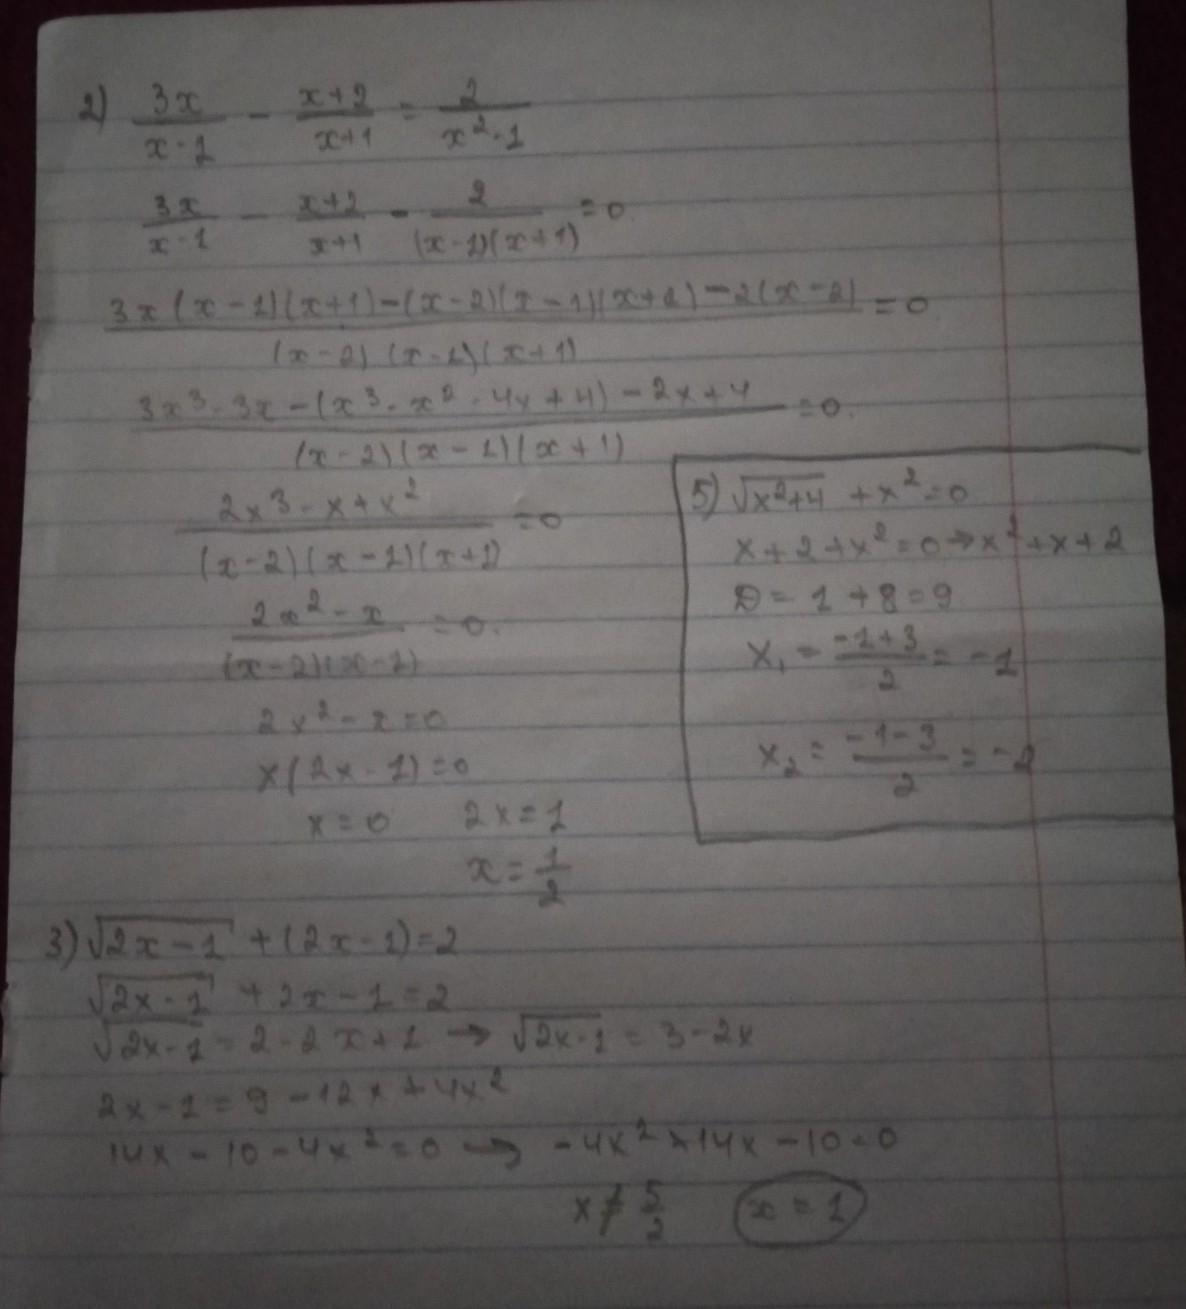 2) 3x/(x-1) - (x+2)/(x+1) = 2/(x²-1)
3x/(x-1) - (x+2)/(x+1) - 2/((x-1)(x+1)) = 0
(3x(x-1)(x+1)-(x-2)(x-1)(x+2)-2(x-2))/((x-2)(x-1)(x+1)) = 0
(3x³-3x-(x³-x²-4x+4)-2x+4)/((x-2)(x-1)(x+1)) = 0.
(2x³-x+x²)/((x-2)(x-1)(x+1)) = 0
(2x²-x)/((x-2)(x-1)) = 0.
2x²-x=0
x(2x-1)=0
x=0 2x=1
x=1/2
5) √(x²+4) + x²=0
x+2+x²=0→x²+x+2
D=1+8=9
x₁=(-1+3)/2=-1
x₂=(-1-3)/2=-2
3) √(2x-1) + (2x-1)=2
√(2x-1) + 2x-1=2
√(2x-1)=2-2x+1 → √(2x-1) = 3-2x
2x-1=9-12x+4x²
14x-10-4x²=0 → -4x²+14x-10=0
x≠5/2 x=1